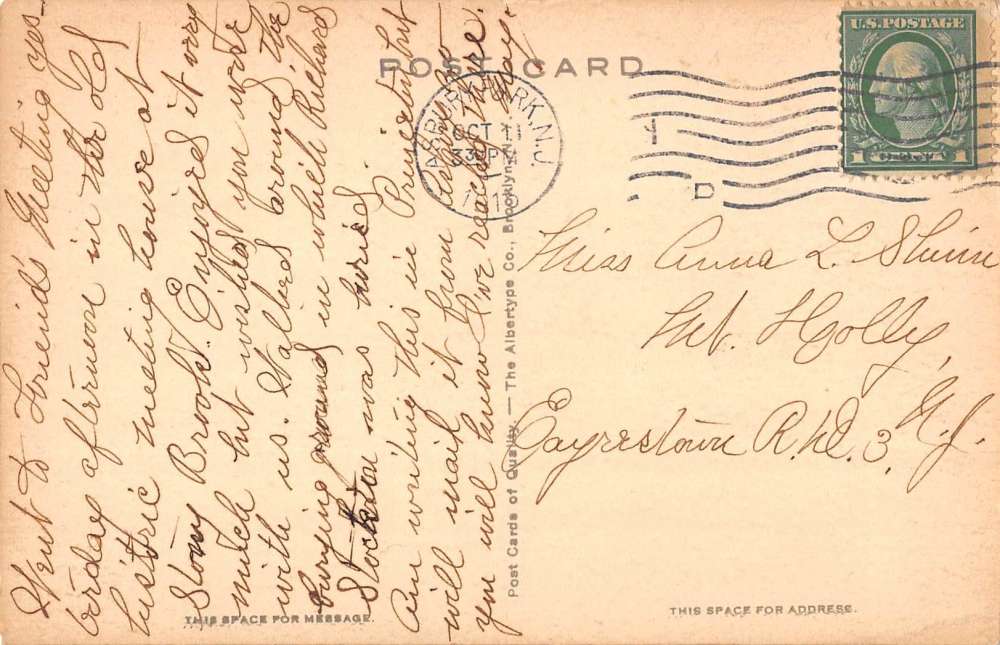 Went to Friend's Meeting yes-
terday afternoon in the old
historic meeting house at
Stony Brook. Enjoyed it very
much but wished you were
with us. Walked around the
burying ground in which Richard
Stockton was buried.
Am writing this in Princeton but
will mail it from
you will know I've reached there.
May.
POST CARD
PARK, N.J.
OCT 11
330 PM
U.S. POSTAGE
1 1
D
Miss Anna L. Shinn
Mt. Holly,
N.J.
Eayrestown R.D. 3,
Post Cards of Quality. — The Albertype Co., Brooklyn, N.Y.
THIS SPACE FOR MESSAGE.
THIS SPACE FOR ADDRESS.